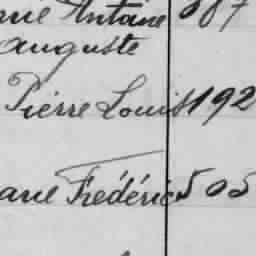 Antoine 387
Auguste
Pierre Louis 192
Frédéric 505